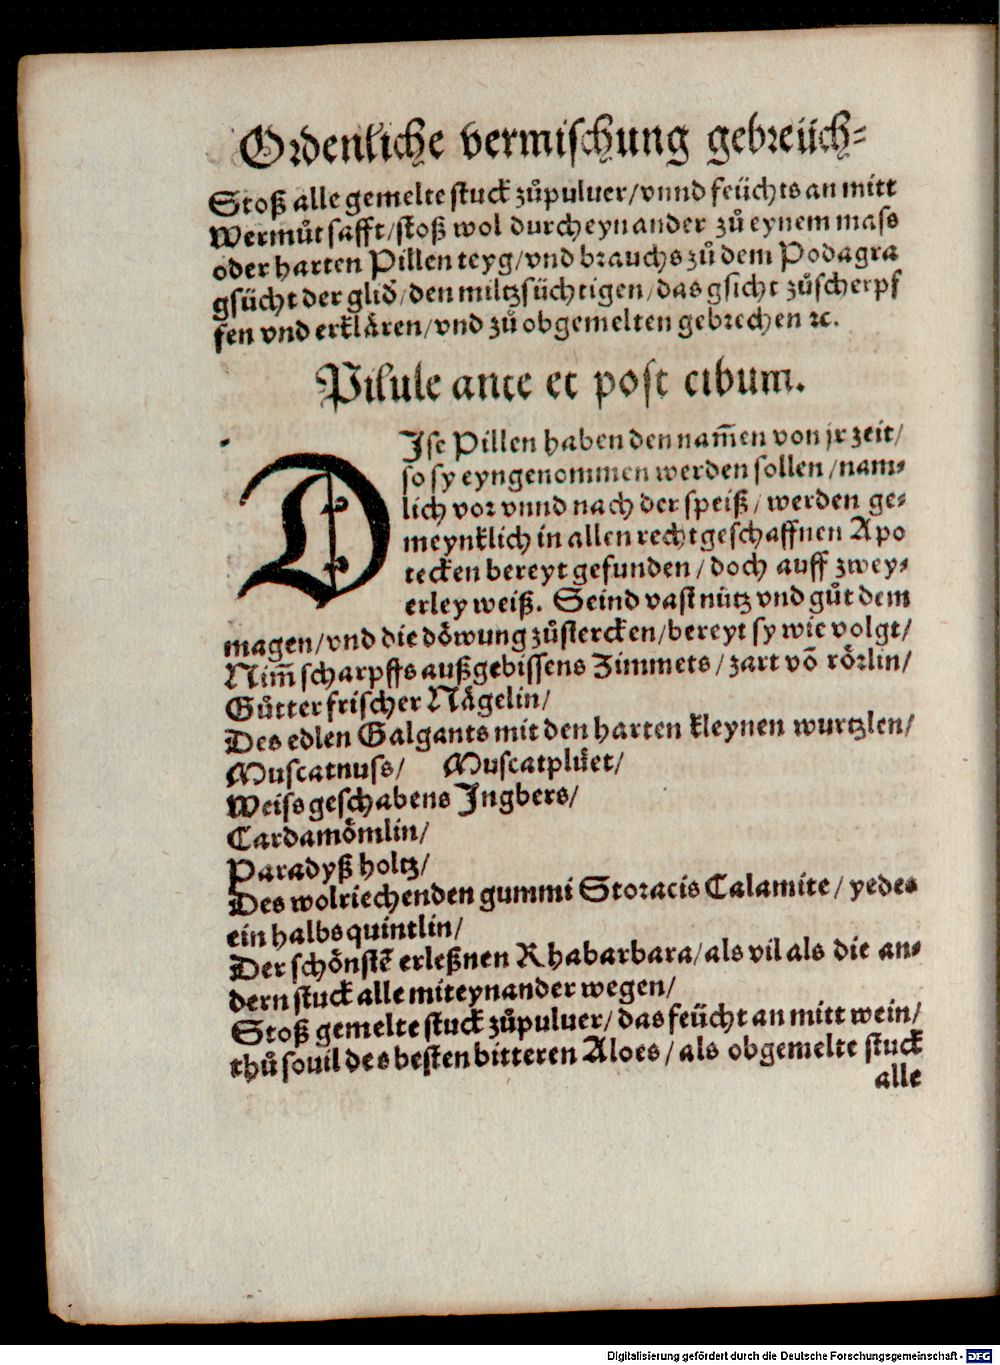 Ordenliche vermischung gebreüch⸗
Stoß alle gemelte stuck zůpuluer/vnnd feüchts an mitt
Wermůt safft/stoß wol durcheynander zů eynem mass
oder harten Pillen teyg/vnd brauchs zů dem Podagra
gsücht der glid̃/den miltzsüchtigen/das gsicht zůscherpf
fen vnd erklären/vnd zů obgemelten gebrechen ꝛc.
Pilule ante et post cibum.
DIse Pillen haben den nam̃en von jr zeit/
so sy eyngenommen werden sollen/nam⸗
lich vor vnnd nach der speiß/werden ge⸗
meynklich in allen rechtgeschaffnen Apo
tecken bereyt gefunden/doch auff zwey⸗
erley weiß. Seind vast nütz vnd gůt dem
magen/vnd die döwung zůstercken/bereyt sy wie volgt/
Nim̃ scharpffs außgebissens Zimmets/zart võ rörlin/
Gůtter frischer Nägelin/
Des edlen Galgants mit den harten kleynen wurtzlen/
Muscatnuss/ Muscatplüet/
Weiss geschabens Ingbers/
Cardamömlin/
Paradyß holtz/
Des wolriechenden gummi Storacis Calamite/yedes
ein halbs quintlin/
Der schönstẽ erleßnen Rhabarbara/als vil als die an⸗
dern stuck alle miteynander wegen/
Stoß gemelte stuck zůpuluer/das feücht an mitt wein/
thů souil des besten bitteren Aloes/als obgemelte stuck
alle
Digitalisierung gefördert durch die Deutsche Forschungsgemeinschaft - DFG